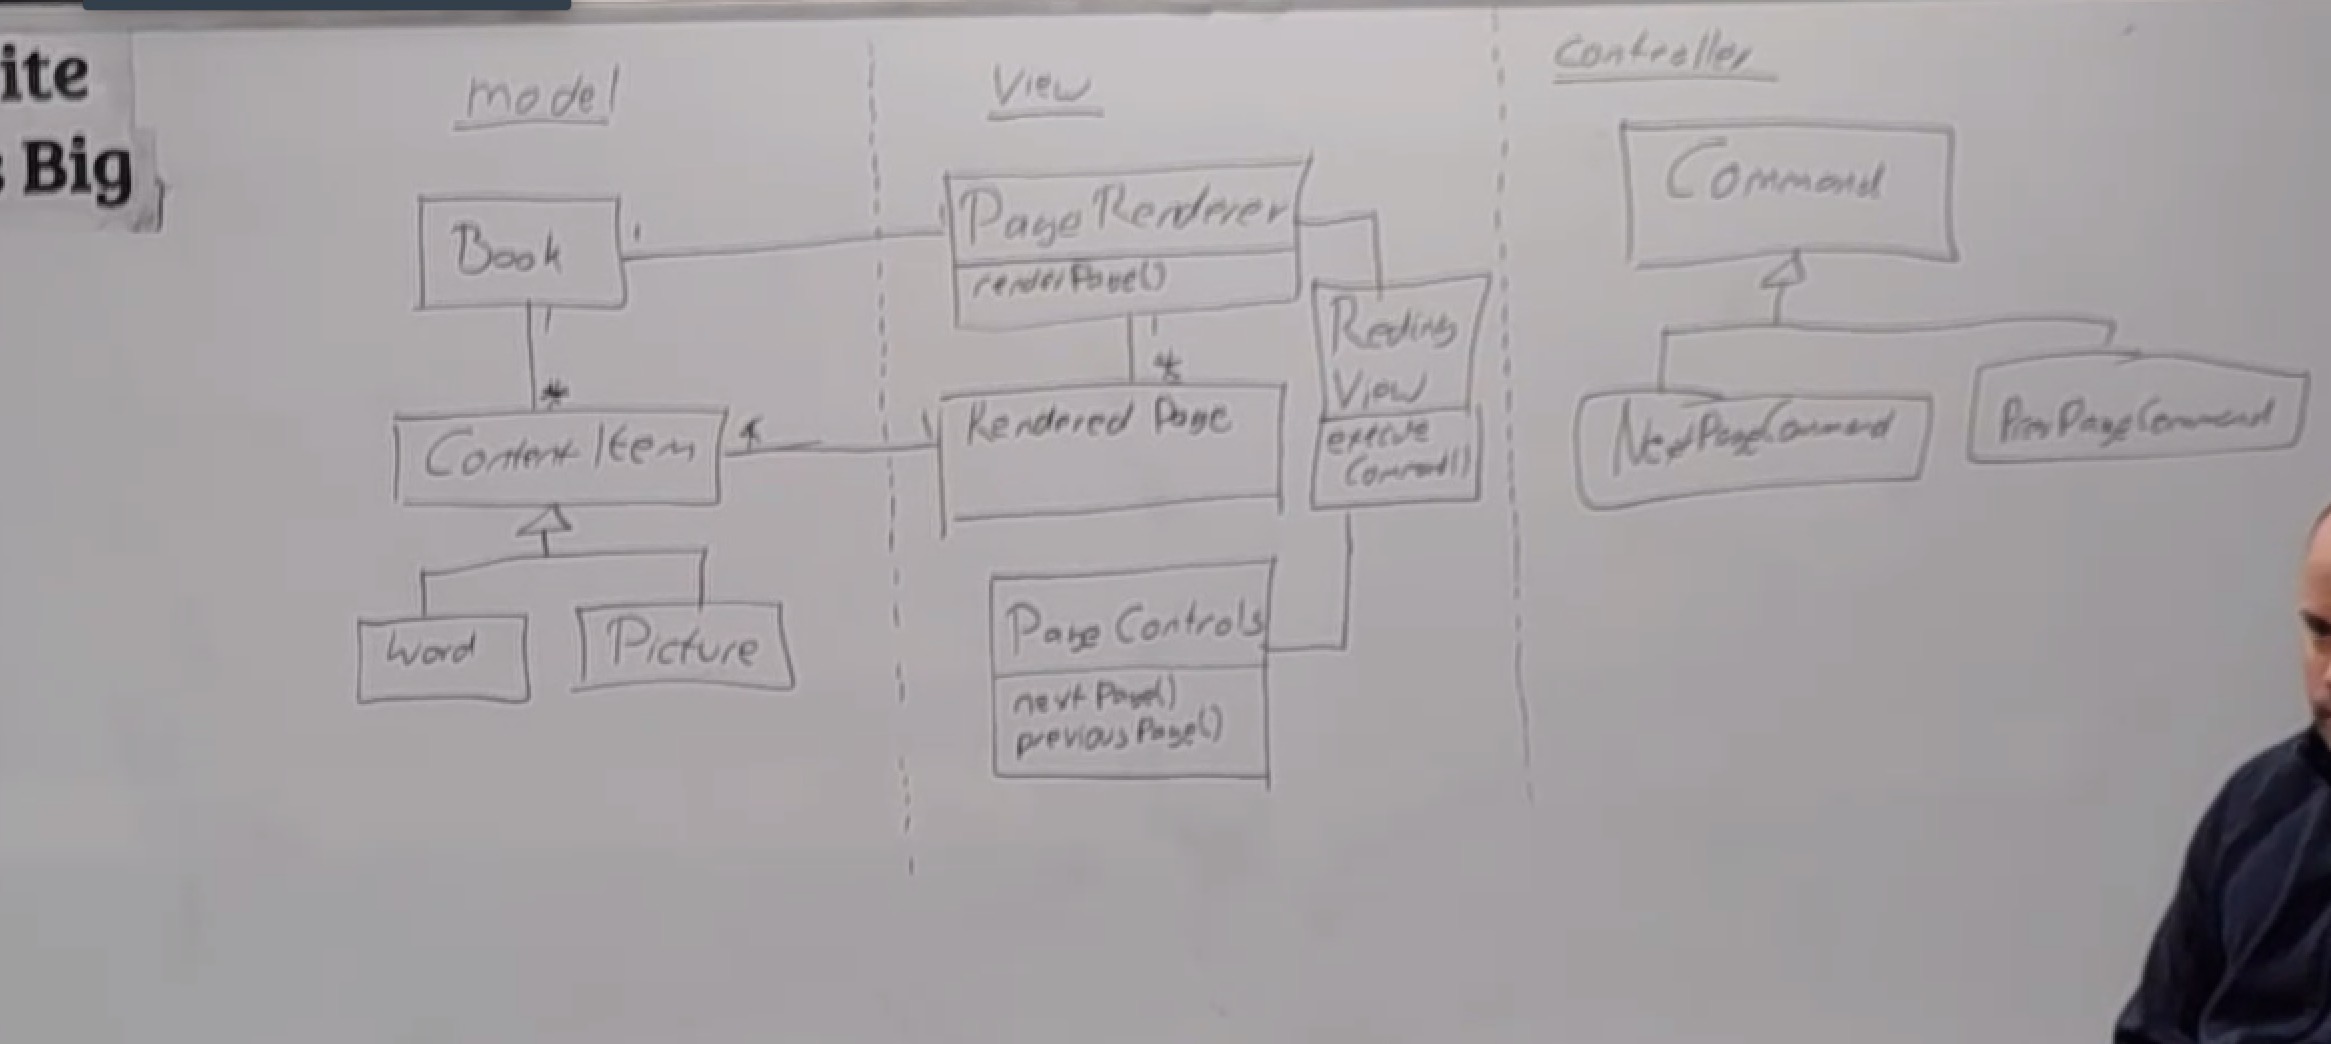 ite
Big
Model
View
Controller
Book
1
1
*
ContentItem
*
Word
Picture
PageRenderer
renderPage()
1
*
Rendered Page
1
Reding
View
execute
Command()
Page Controls
nextPage()
previousPage()
Command
NextPageCommand
PrevPageCommand